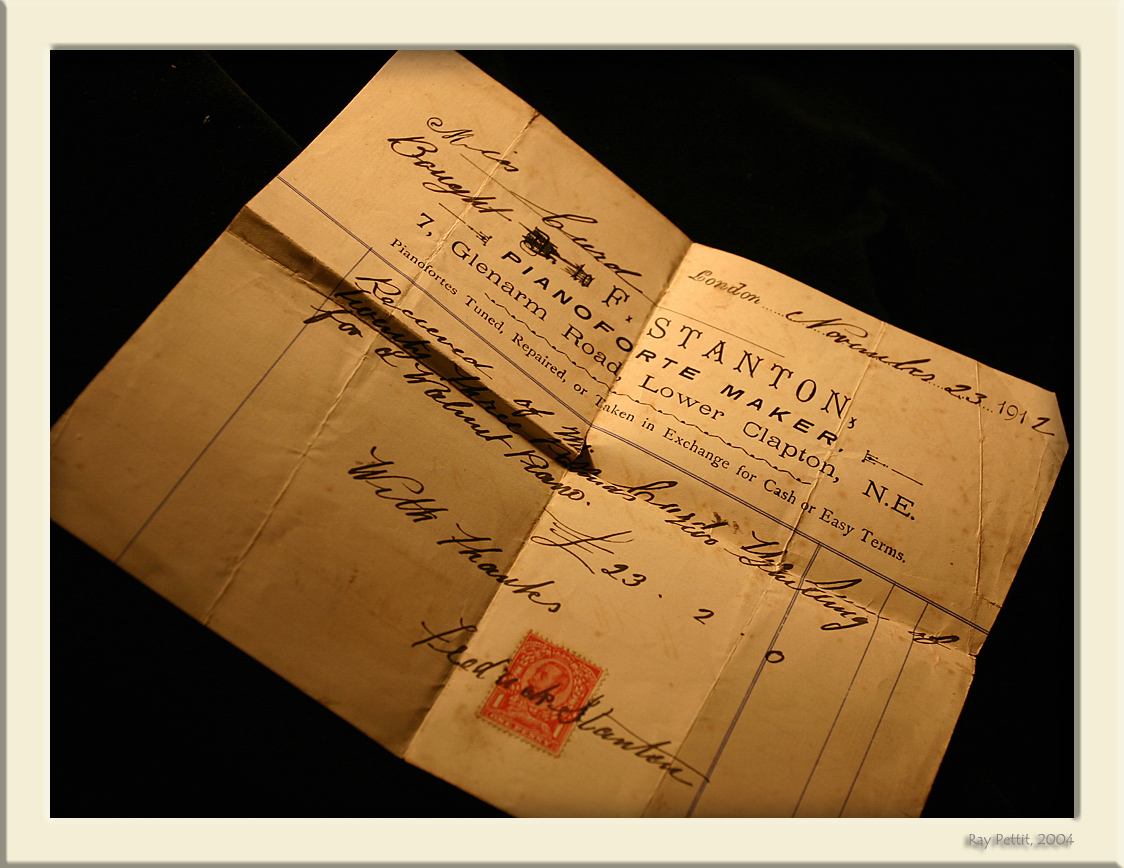 London November 23 1912
Miss Curd
Bought of F. STANTON,
PIANOFORTE MAKER,
7, Glenarm Road, Lower Clapton, N.E.
Pianofortes Tuned, Repaired, or Taken in Exchange for Cash or Easy Terms.
Received of Miss Curd
Twenty three Pounds two Shilling
for a Walnut Piano.
£23. 2. 0
With thanks
Fredrick Stanton
1 1
ONE PENNY
Ray Pettit, 2004